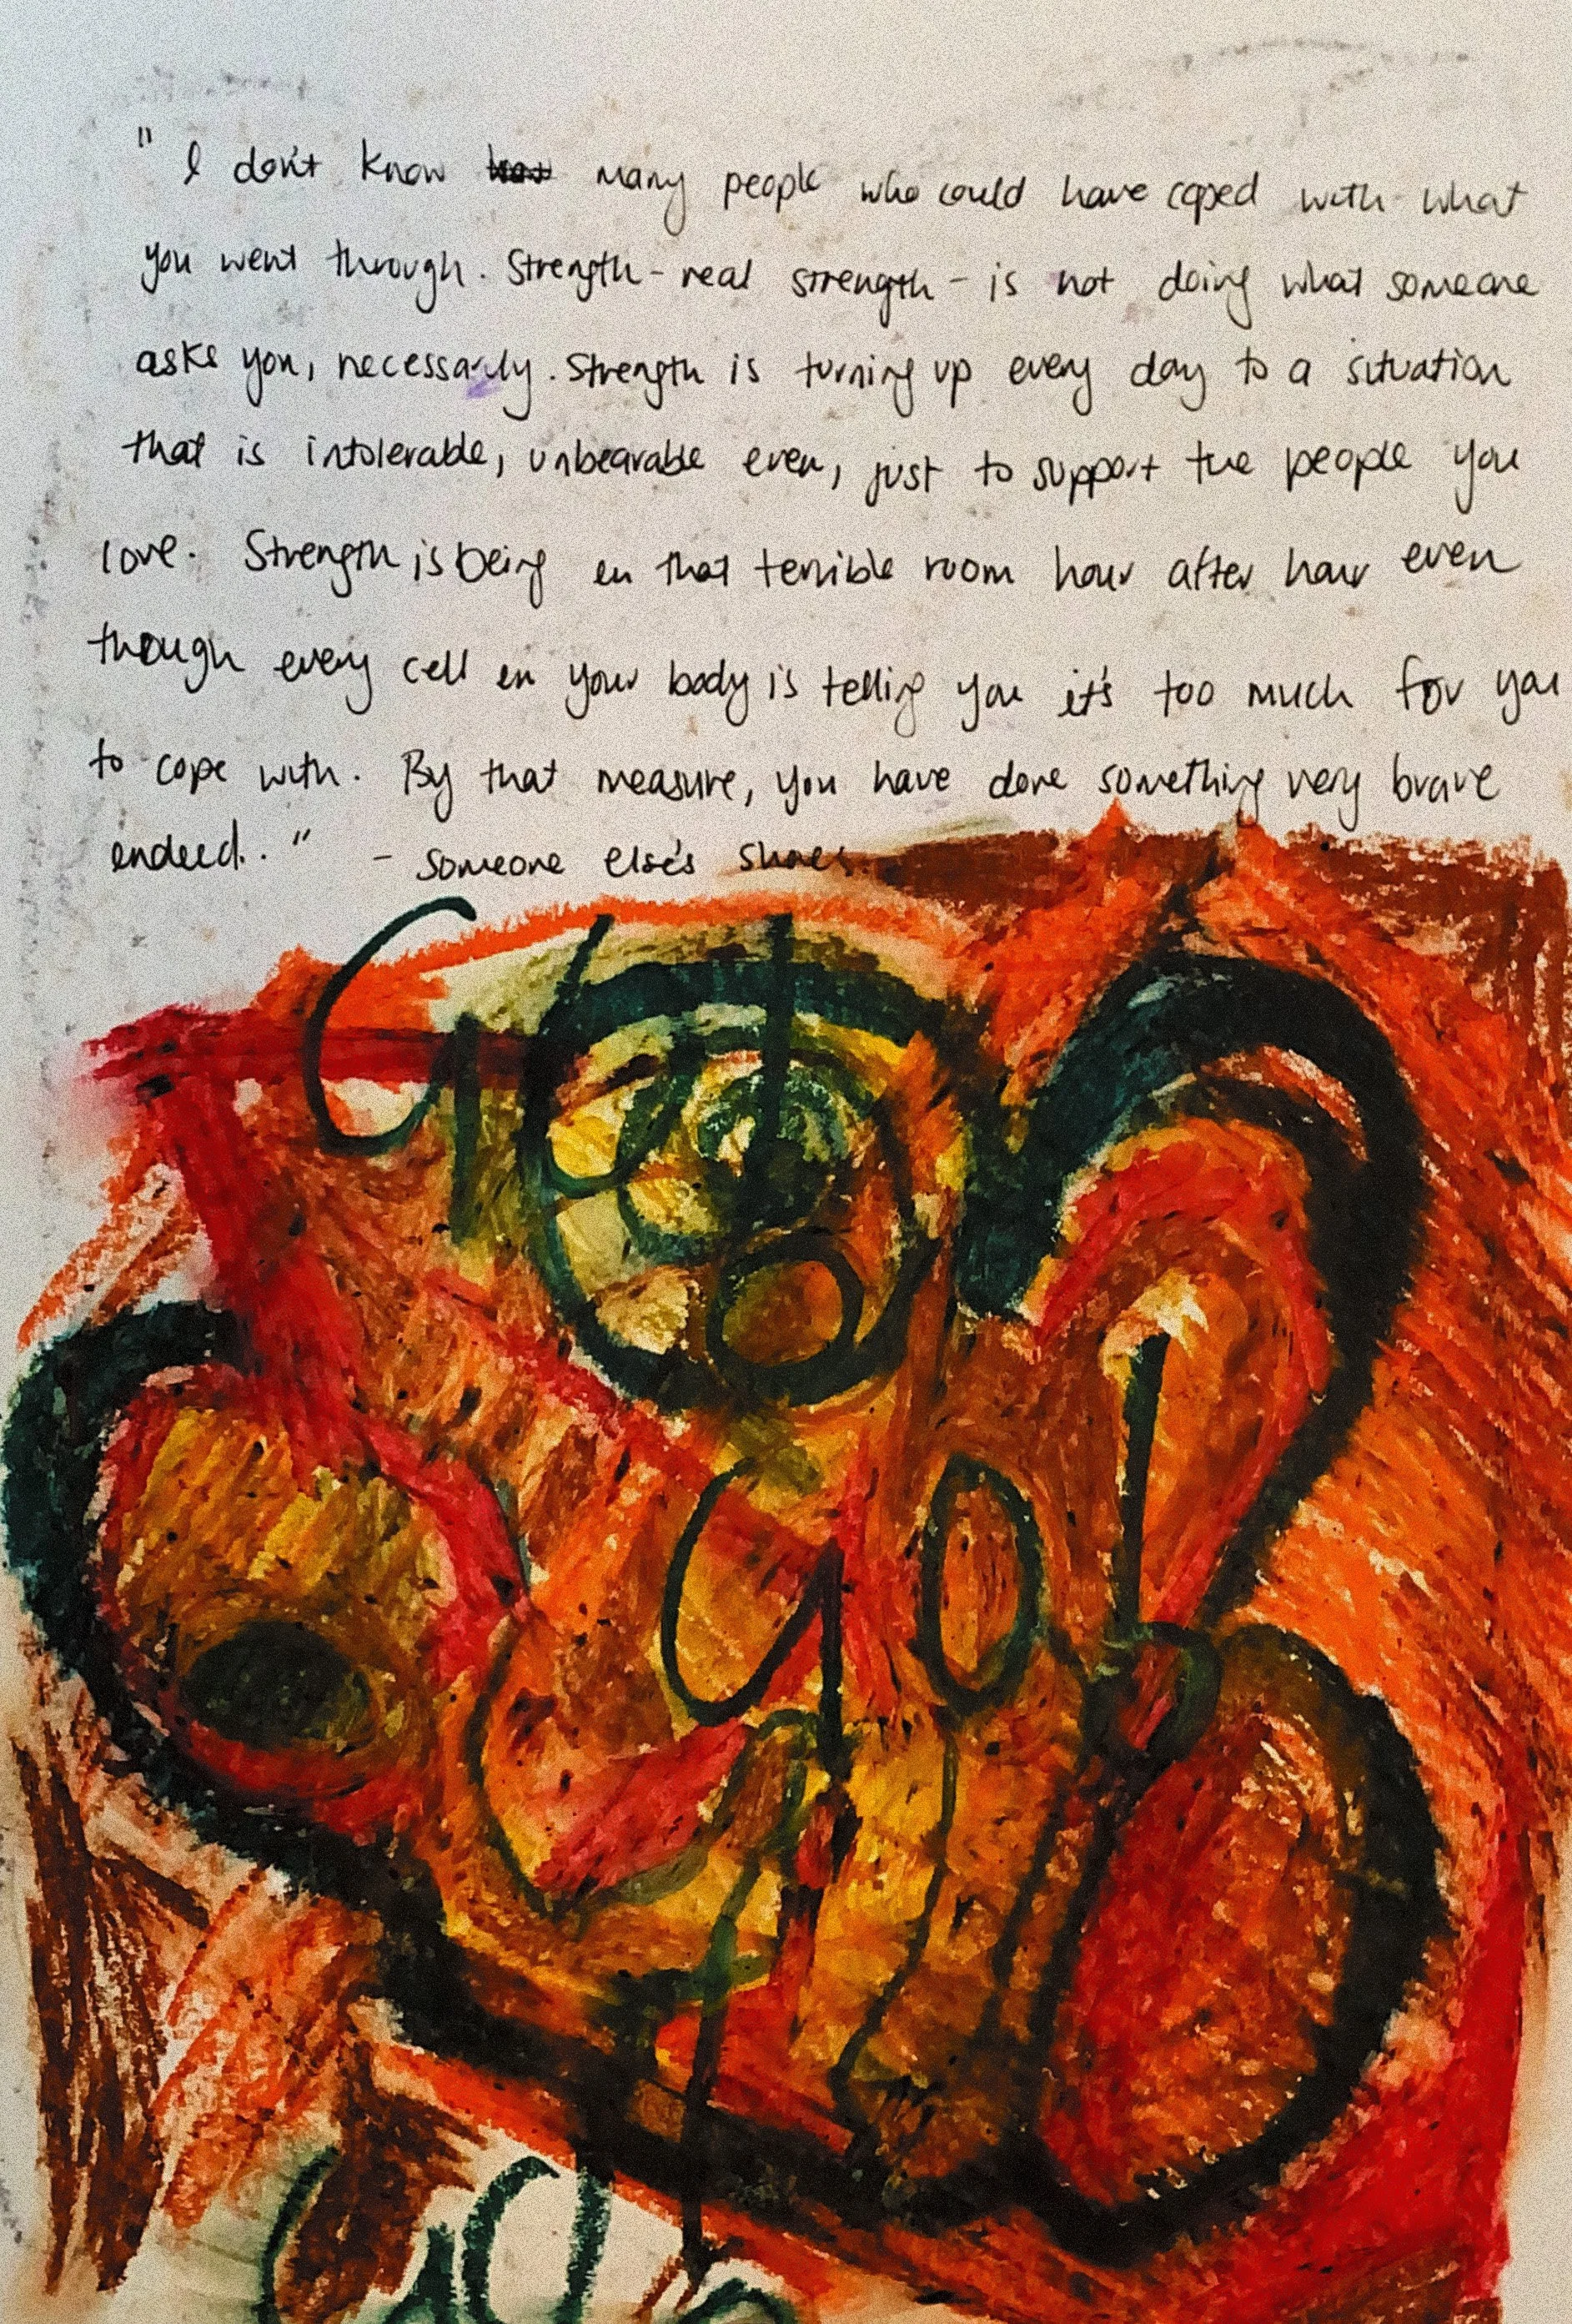 "I don't know many people who could have coped with what
you went through. Strength - real strength - is not doing what someone
asks you, necessarily. Strength is turning up every day to a situation
that is intolerable, unbearable even, just to support the people you
love. Strength is being in that terrible room hour after hour even
though every cell in your body is telling you it's too much for you
to cope with. By that measure, you have done something very brave
indeed.." - Someone else's shoes.